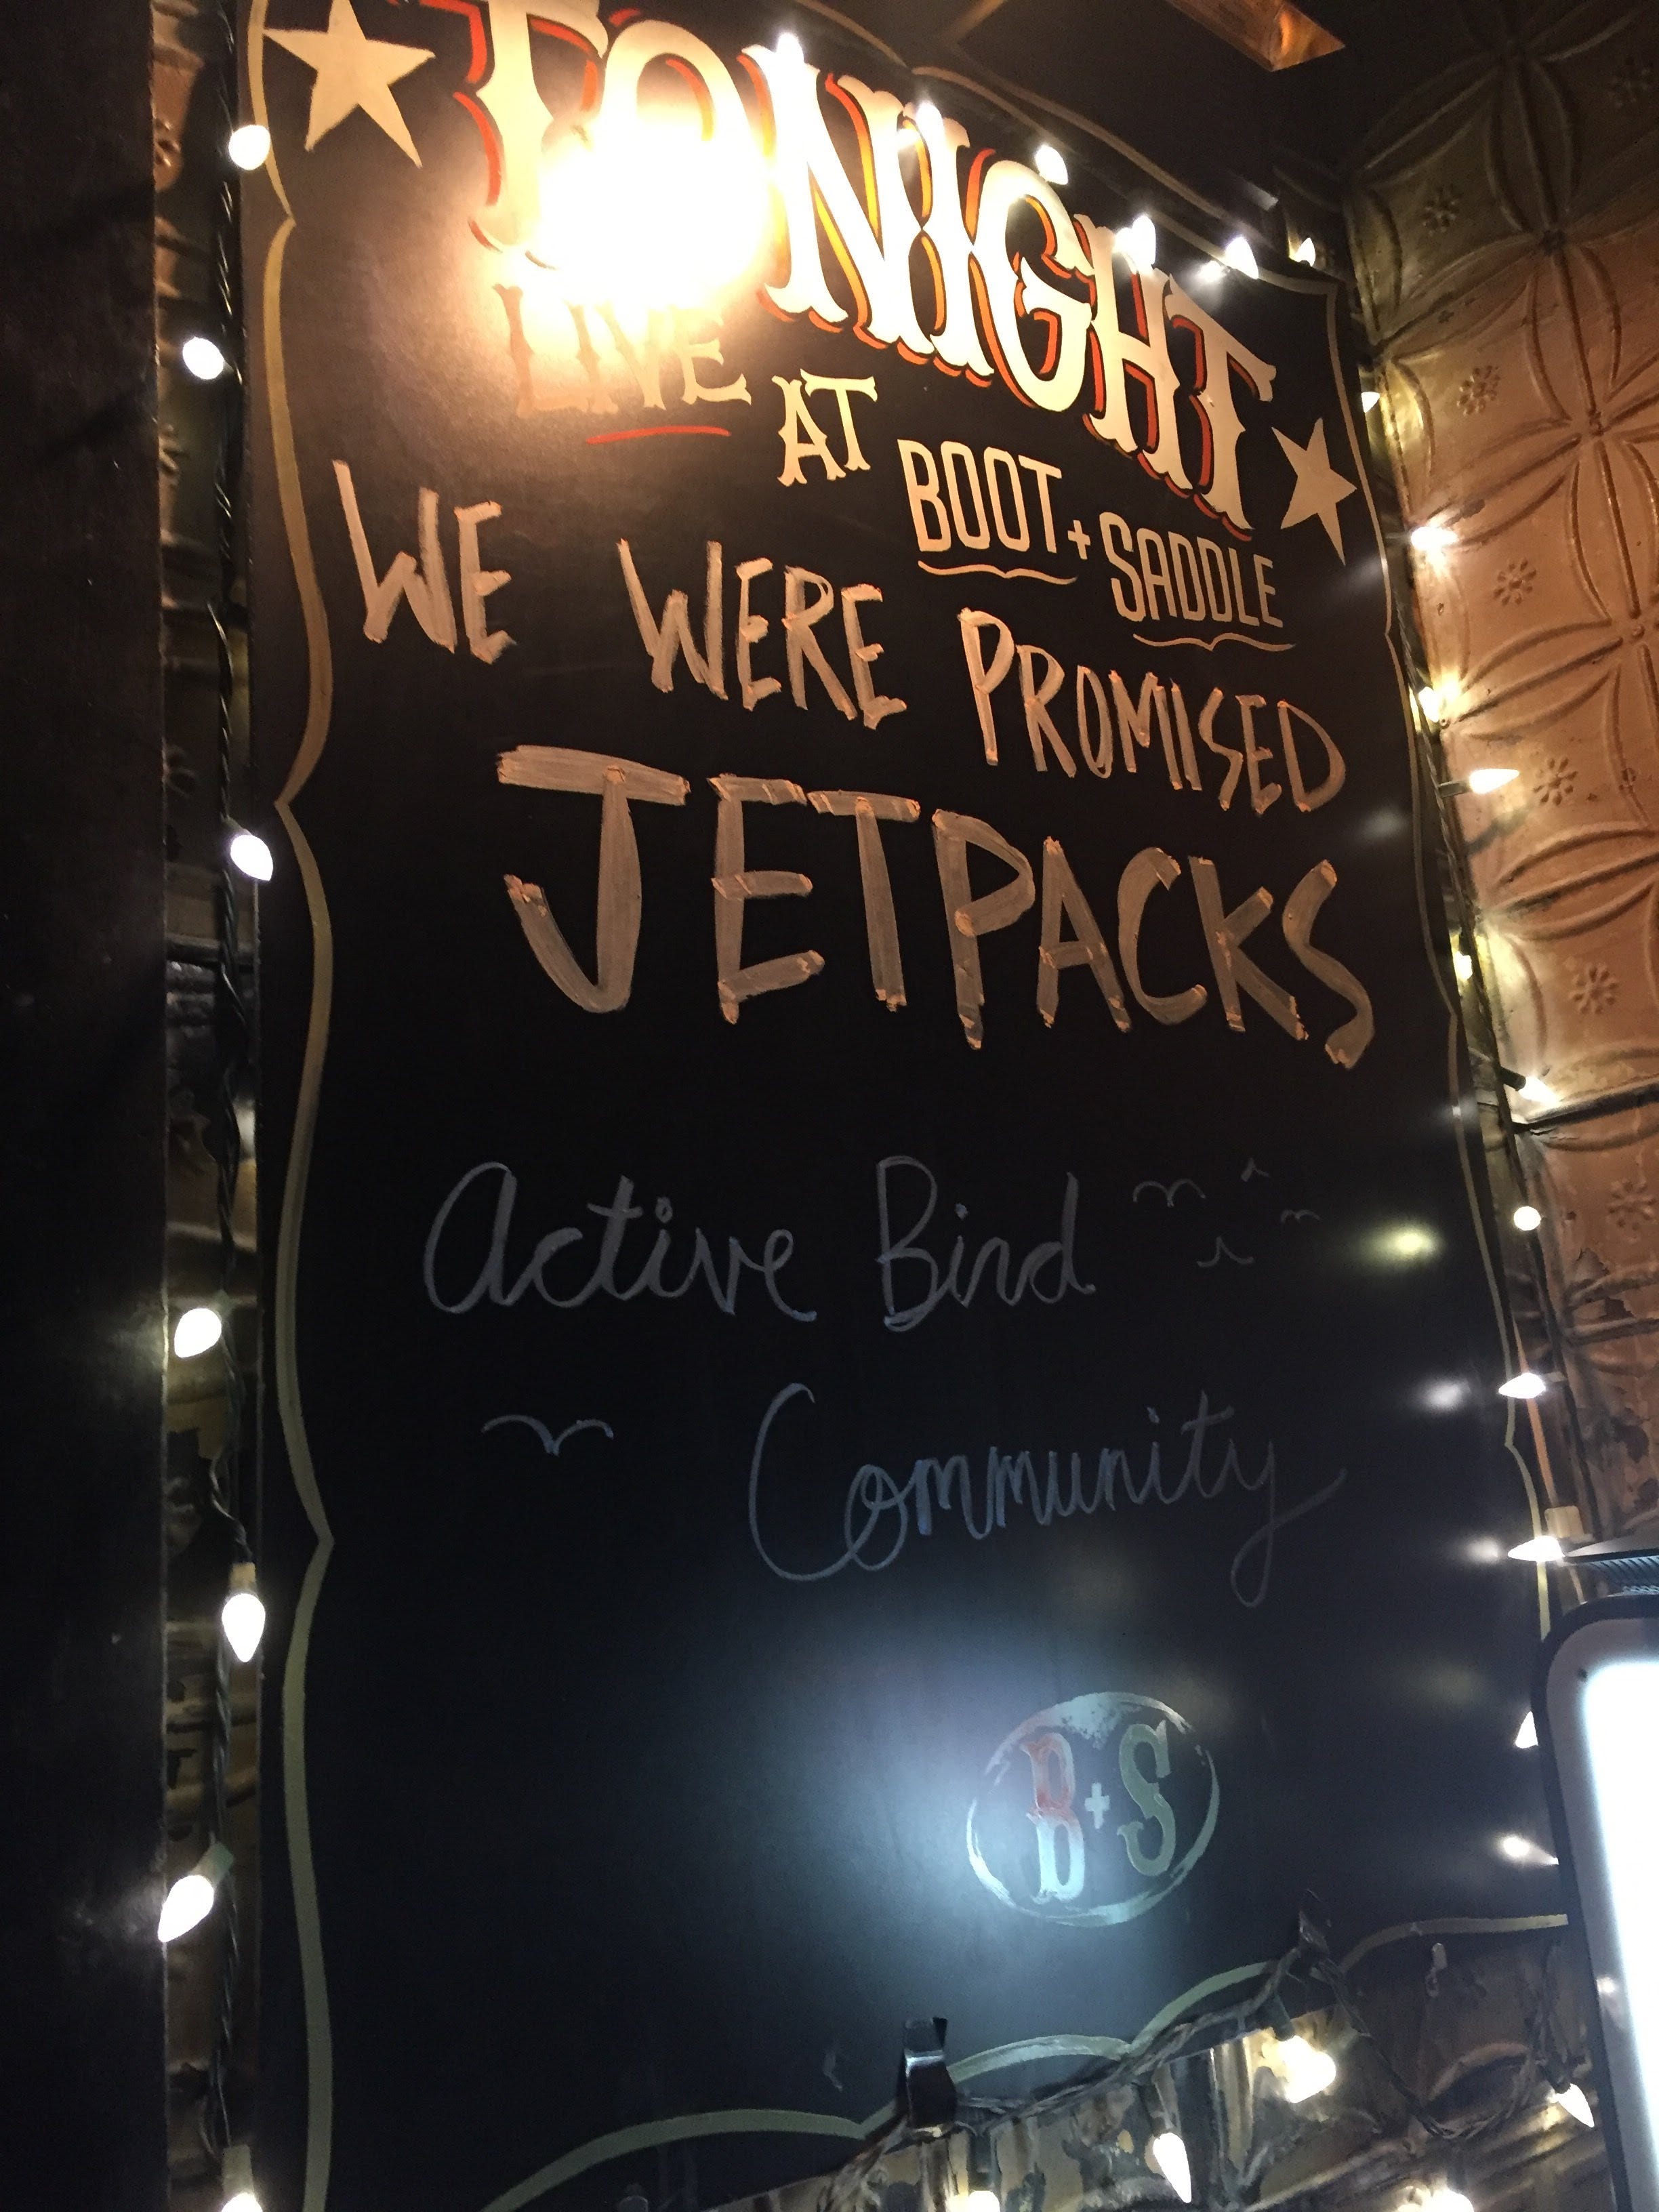 TONIGHT
LIVE AT BOOT + SADDLE
WE WERE PROMISED
JETPACKS
Active Bird
Community
B+S